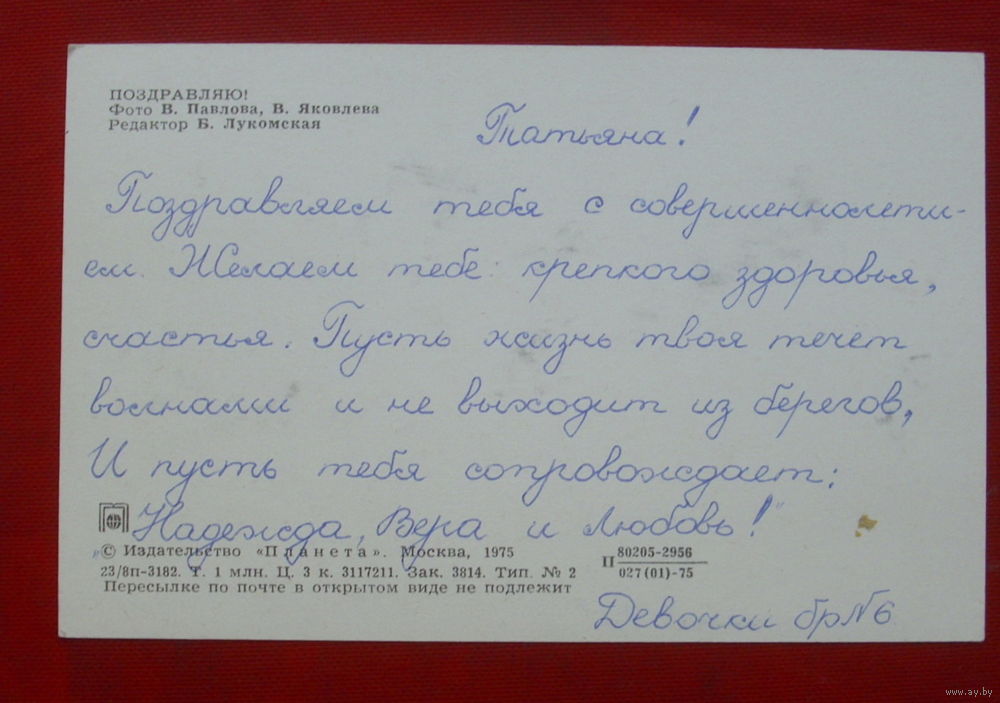 ПОЗДРАВЛЯЮ!
Фото В. Павлова, В. Яковлева
Редактор Б. Лукомская
Татьяна!
Поздравляем тебя с совершеннолети-
ем. Желаем тебе крепкого здоровья,
счастья. Пусть жизнь твоя течет
волнами и не выходит из берегов,
И пусть тебя сопровождает:
Надежда, Вера и Любовь!"
„© Издательство «Планета». Москва, 1975
23/8п-3182. Т. 1 млн. Ц. 3 к. 3117211. Зак. 3814. Тип. № 2
Пересылке по почте в открытом виде не подлежит
П 80205-2956
027(01)-75
Девочки бр№6
www.ay.by